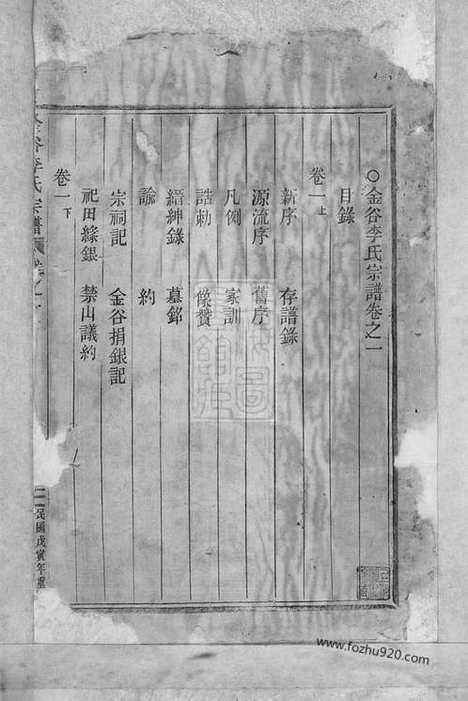 〇金谷李氏宗譜卷之一
目錄
卷一上
新序 存譜錄
源流序 舊序
凡例 家訓
誥勅 像贊
縉紳錄 墓銘
諭 約
宗祠記 金谷捐銀記
祀田緣銀 禁山議約
卷一下
李氏宗譜
民國戊寅年重
www.fozhu920.com